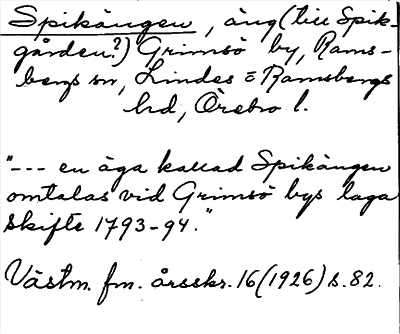 Spikängen, äng (till Spik-
gården?) Grimsö by, Rams-
bergs sn, Lindes o Ramsbergs
hd, Örebro l.
"--- en äga kallad Spikängen
omtalas vid Grimsö bys laga
skifte 1793-94."
Västm. fm. årsskr. 16 (1926) s. 82.